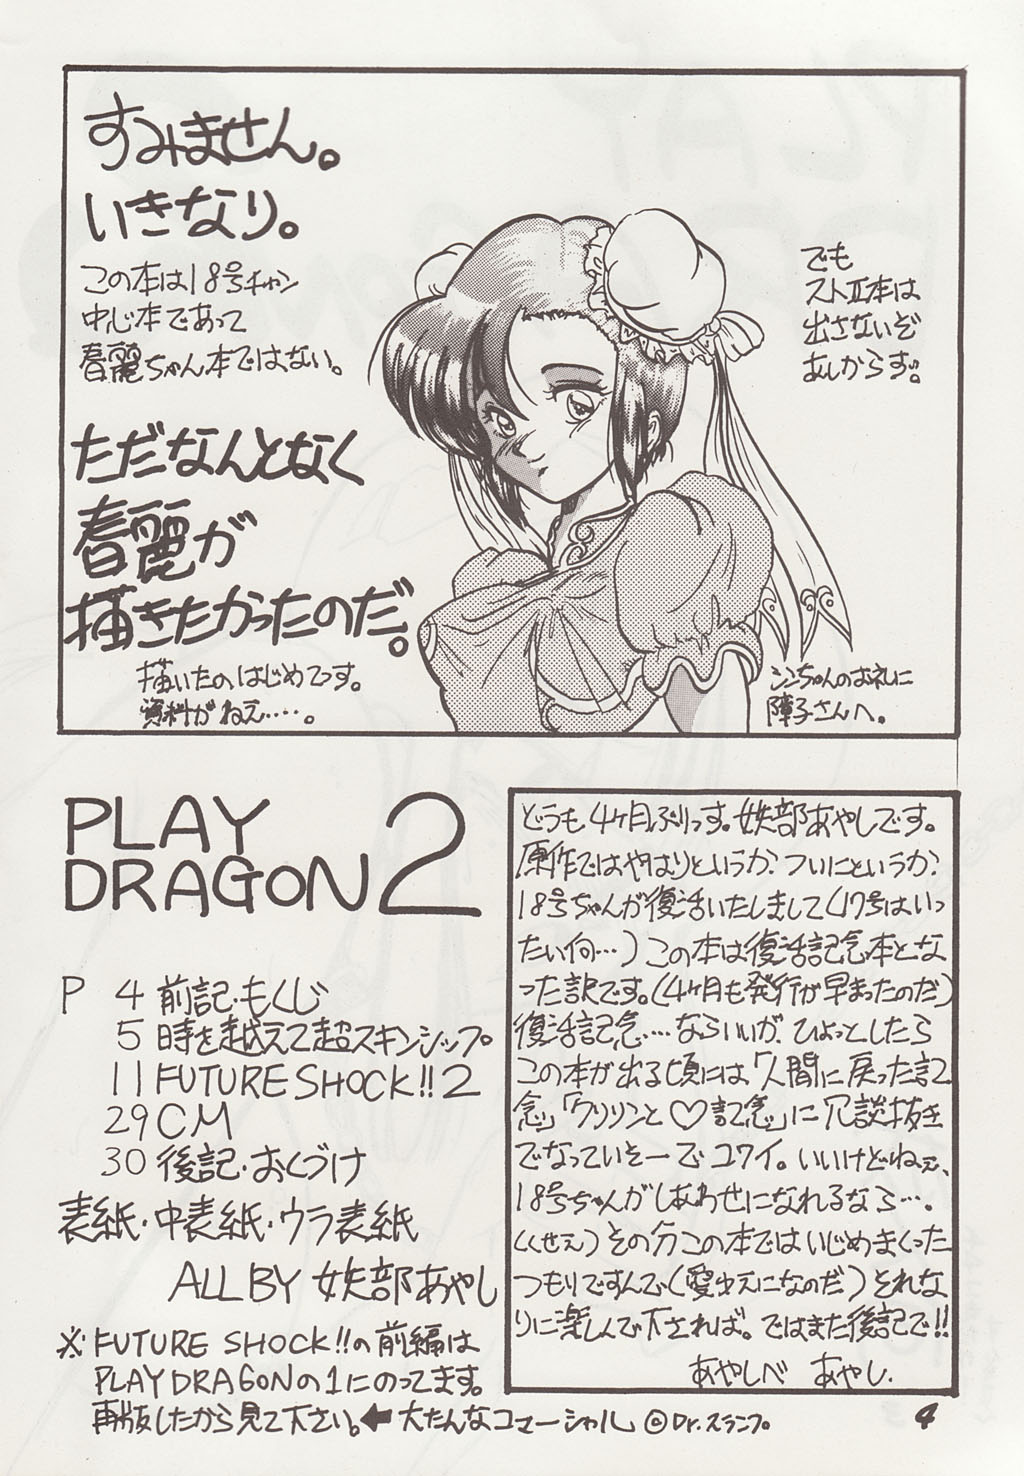 すみません。
いきなり。
この本は18号チャン
中心本であって
春麗ちゃん本ではない。
ただなんとなく
春麗が
描きたかったのだ。
描いたのはじめてっす。
資料がねえ‥‥。
でも
ストⅡ本は
出さないぞ
あしからず。
シンちゃんのお礼に
障子さんへ。
PLAY
DRAGON 2
P 4 前記・もくじ
5 時を越えて超スキンシップ。
11 FUTURE SHOCK!! 2
29 CM
30 後記・おくづけ
表紙・中表紙・ウラ表紙
ALL BY 妖部あやし
※FUTURE SHOCK!!の前編は
PLAY DRAGONの1にのってます。
再版したから見て下さい。←大たんなコマーシャル ©Dr.スランプ。
どうも4ヶ月ぶりっす。妖部あやしです。
原作ではやはりというか、ついにというか、
18号ちゃんが復活いたしまして(17号はいっ
たい何…)この本は復活記念本とな
った訳です。(4ヶ月も発行が早まったのだ)
復活記念…ならいいが、ひょっとしたら
この本が出る頃には「人間に戻った記
念」「クリリンと♡記念」に冗談抜き
でなっていそーでコワイ。いいけどねぇ、
18号ちゃんがしあわせになれるなら…。
(くせえ)その分この本ではいじめまくった
つもりですんで(愛ゆえになのだ)それな
りに楽しんで下されば。ではまた後記で!!
あやしべ あやし.
4